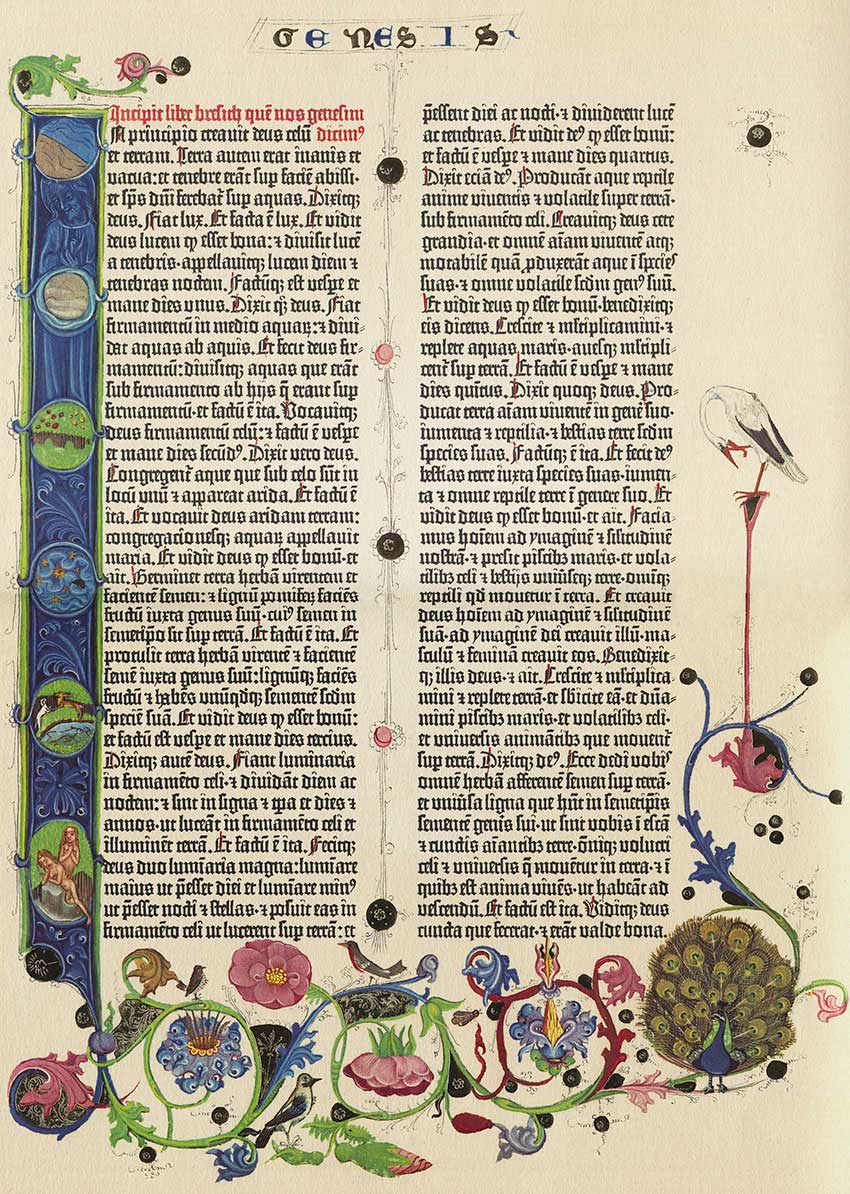 GENESIS
Incipit liber bresith quē nos genesim
In principio creavit deus celū dicimꝰ
et terram. Terra autem erat inanis et
vacua: et tenebre erāt sup faciē abissi:
et sp̄s dn̄i ferebat᷑ sup aquas. Dixitqꝫ
deus. Fiat lux. Et facta ē lux. Et vidit
deus lucem ꝙ esset bona: ⁊ divisit lucē
a tenebris·appellavitqꝫ lucem diem ⁊
tenebras noctem. Factūqꝫ est vespe et
mane dies unus. Dixit qꝫ deus. Fiat
firmamentū in medio aquaꝝ: ⁊ divi-
dat aquas ab aquis. Et fecit deus fir-
mamentū: divisitqꝫ aquas que erāt
sub firmamento ab hijs q̄ erant sup
firmamentū·et factū ē ita. Vocavitqꝫ
deus firmamentū celū: ⁊ factū ē vespe
et mane dies secūdꝰ. Dixit vero deus.
Congregent᷑ aque que sub celo sūt in
locū unū ⁊ appareat arida. Et factū ē
ita. Et vocavit deus aridam terram:
congregacionesqꝫ aquaꝝ appellavit
maria. Et vidit deus ꝙ esset bonū·et
ait. Germinet terra herbā virentem et
facientē semen: ⁊ lignū pomifeꝝ faciēs
fructū iuxta genus suū·cuiꝰ semen in
semetip̄o sit sup terrā. Et factū ē ita. Et
protulit terra herbā virentē ⁊ facientē
semē iuxta genus suū: lignūqꝫ faciēs
fructū ⁊ habēs unūqdqꝫ sementē scdm
speciē suā. Et vidit deus ꝙ esset bonū:
et factū est vespe et mane dies tercius.
Dixitqꝫ autē deus. Fiant luminaria
in firmamēto celi·⁊ dividāt diem ac
noctem: ⁊ sint in signa ⁊ tp̄a et dies ⁊
annos·ut luceāt in firmamēto celi et
illuminēt terrā. Et factū ē ita. Fecitqꝫ
deus duo luminaria magna: lumiare
maius ut p̄esset diei et lumiare minꝰ
ut p̄esset nocti ⁊ stellas·⁊ posuit eas in
firmamēto celi ut lucerent sup terrā: et
p̄essent diei ac nocti·⁊ dividerent lucē
ac tenebras. Et vidit deꝰ ꝙ esset bonū:
et factū ē vespe ⁊ mane dies quartus.
Dixit eciā deꝰ. Producāt aque reptile
anime viventis ⁊ volatile super terrā·
sub firmamēto celi. Creavitqꝫ deus cete
grandia·et omnē aīam viventē atqꝫ
motabilē quā pduxerāt aque ī species
suas·⁊ omne volatile scdm genꝰ suū.
Et vidit deus ꝙ esset bonū·benedixitqꝫ
eis dicens. Crescite ⁊ mltiplicamini·⁊
replete aquas maris·avesqꝫ mltipli-
cent᷑ sup terrā. Et factū ē vespe ⁊ mane
dies quītus. Dixit quoqꝫ deus. Pro-
ducat terra aīam viventē in genē suo·
iumenta ⁊ reptilia·⁊ bestias terre scdm
species suas. Factūqꝫ ē ita. Et fecit deꝰ
bestias terre iuxta species suas·iumen-
ta ⁊ omne reptile terre ī genere suo. Et
vidit deus ꝙ esset bonū·et ait. Facia-
mus hoīem ad ymaginē ⁊ silitudinē
nostrā·⁊ presit piscibꝫ maris·et vola-
tilibꝫ celi ⁊ bestijs univseqꝫ terre·omīqꝫ
reptili qd movetur ī terra. Et creavit
deus hoīem ad ymaginē ⁊ silitudinē
suā·ad ymaginē dei creavit illū·ma-
sculū ⁊ feminā creavit eos. Benedixit-
qꝫ illis deus·⁊ ait. Crescite ⁊ mltiplica-
mini ⁊ replete terrā·et sbicite eā·et dn̄a-
mini piscibꝫ maris·et volatilibꝫ celi·
et universis animātibꝫ que movent᷑
sup terrā. Dixitqꝫ deꝰ. Ecce dedi vobis
omnē herbā afferentē semen sup terrā·
et univsa ligna que hn̄t in semetip̄is
sementē genis sui·ut sint vobis ī escā
⁊ cunctis aīantibꝫ terre·ōniqꝫ volucri
celi ⁊ universis q̄ moventur in terra·⁊ ī
quibꝫ est anima vivēs·ut habeāt ad
vescendū. Et factū est ita. Viditqꝫ deus
cuncta que fecerat·⁊ erāt valde bona.